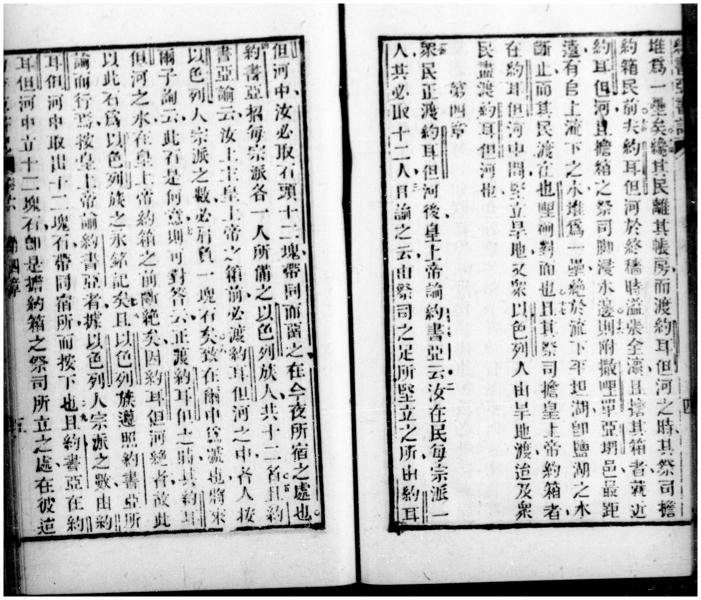 堆爲一壘矣纔其民離其帳房而渡約耳但河之時其祭司擔
約箱民前夫約耳但河於終穡時溢漲全瀛且擔其箱者蓺近
約耳但河且擔箱之祭司脚浸水邊則附撒哩單亞坍邑最距
遠有自上流下之水堆爲一壘絶於流下平坦湖卽鹽湖之水
斷止而其民渡在也哩㖿對面也且其祭司擔皇上帝約箱者
在約耳但河中間堅立旱地又衆以色列人由旱地渡迨及衆
民盡渡約耳但河也
第四章
衆民正渡約耳但河後皇上帝諭約書亞云汝在民每宗派一
人共必取十二人且諭之云由祭司之足所堅立之所由約耳
但河中汝必取石頭十二塊帶同而置之在今夜所宿之處也
約書亞招每宗派各一人所備之以色列族人共十二名且約
書亞諭云汝上主皇上帝之箱前必渡約耳但河之中各人按
以色列人宗派之數必肩負一塊石矣致在爾中爲號也將來
爾子詢云此石是何意則可對答云正渡約耳但之時其約耳
但河之水在皇上帝約箱之前斷絶矣因約耳但河絶者故此
以此石爲以色列族之永銘記矣且以色列族遵照約書亞所
諭而行焉按皇上帝諭約書亞者據以色列人宗派之數由約
耳但河中取出十二塊石帶同宿所而按下也且約書亞在約
耳但河中立十二塊石卽是擔約箱之祭司所立之處在彼迨